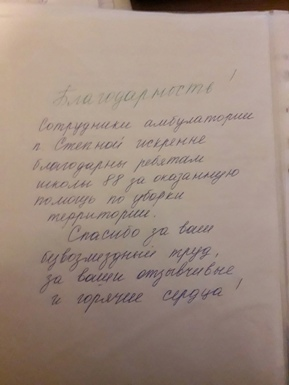 Благодарность!
Сотрудники амбулатории
п. Степной искренне
благодарны ребятам
школы 88 за оказанную
помощь по уборки
территории.
Спасибо за ваш
безвозмездный труд,
за ваши отзывчивые
и горячие сердца!